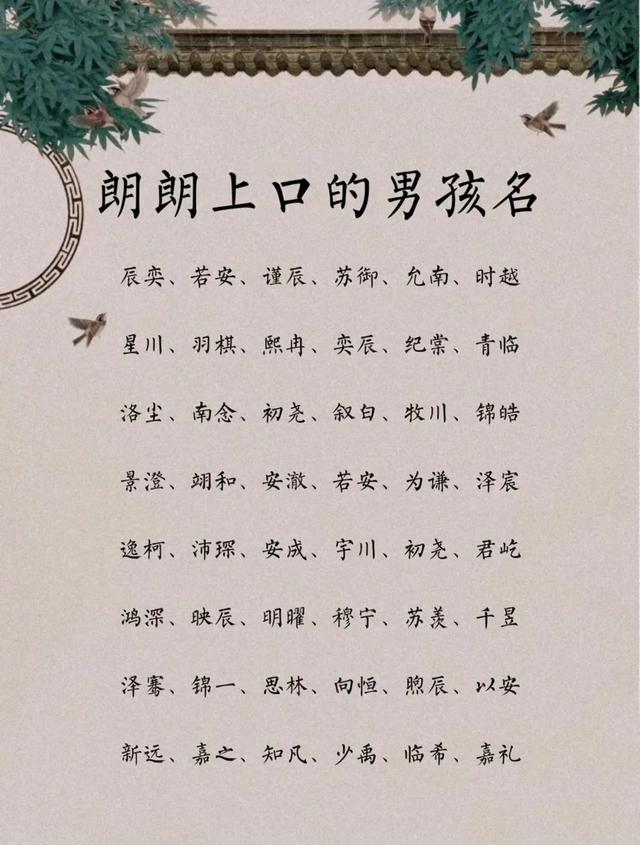 朗朗上口的男孩名
辰奕、若安、谨辰、苏御、允南、时越
星川、羽棋、熙冉、奕辰、纪棠、青临
洛尘、南念、初尧、叙白、牧川、锦皓
景澄、翊和、安澈、若安、为谦、泽宸
逸柯、沛琛、安成、宇川、初尧、君屹
鸿深、映辰、明曜、穆宁、苏羡、千昱
泽骞、锦一、思林、向恒、煦辰、以安
新远、嘉之、知凡、少禹、临希、嘉礼